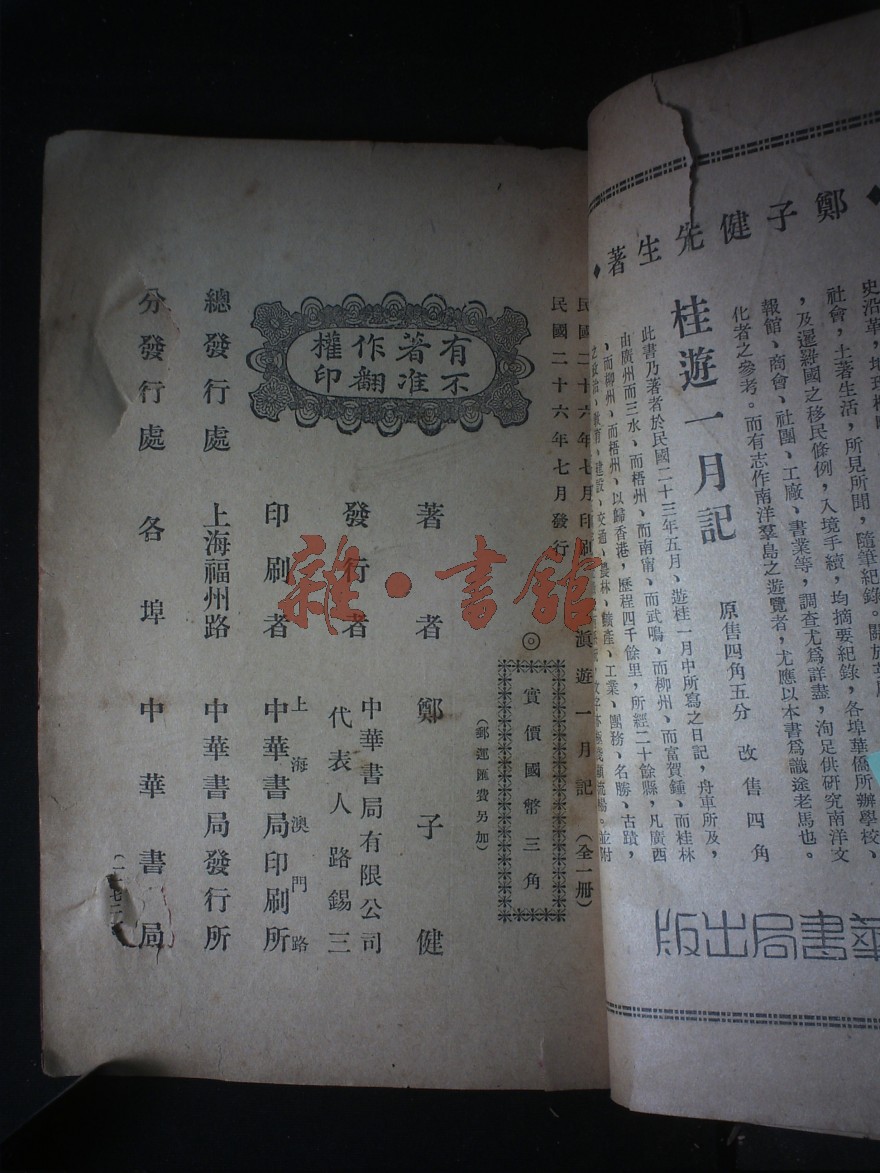 鄭子健先生著
史沿革，
社會，土著生活，所見所聞，隨筆紀錄。關於
，及暹羅國之移民條例，入境手續，均摘要紀錄，各埠華僑所辦學校、
報館、商會、社團、工廠、書業等，調查尤爲詳盡，洵足供研究南洋文
化者之參考。而有志作南洋羣島之遊覽者，尤應以本書爲識途老馬也。
桂遊一月記
原售四角五分 改售四角
此書乃著者於民國二十三年五月、遊桂一月中所寫之日記，舟車所及，
由廣州而三水、而梧州、而南甯、而武鳴、而柳州、而富賀鍾、而桂林
、而柳州、而梧州、以歸香港，歷程四千餘里，所經二十餘縣，凡廣西
之政治、教育、建設、交通、農林、礦產、工業、團務、名勝、古蹟，
並附
華書局出版
民國二十六年七月印刷
民國二十六年七月發行
滇遊一月記（全一册）
◎
實價國幣三角
（郵運匯費另加）
有著作權
不准翻印
著者 鄭子健
發行者 中華書局有限公司
代表人路錫三
印刷者 上海澳門路
中華書局印刷所
總發行處 上海福州路 中華書局發行所
分發行處 各埠 中華書局
雜·書館